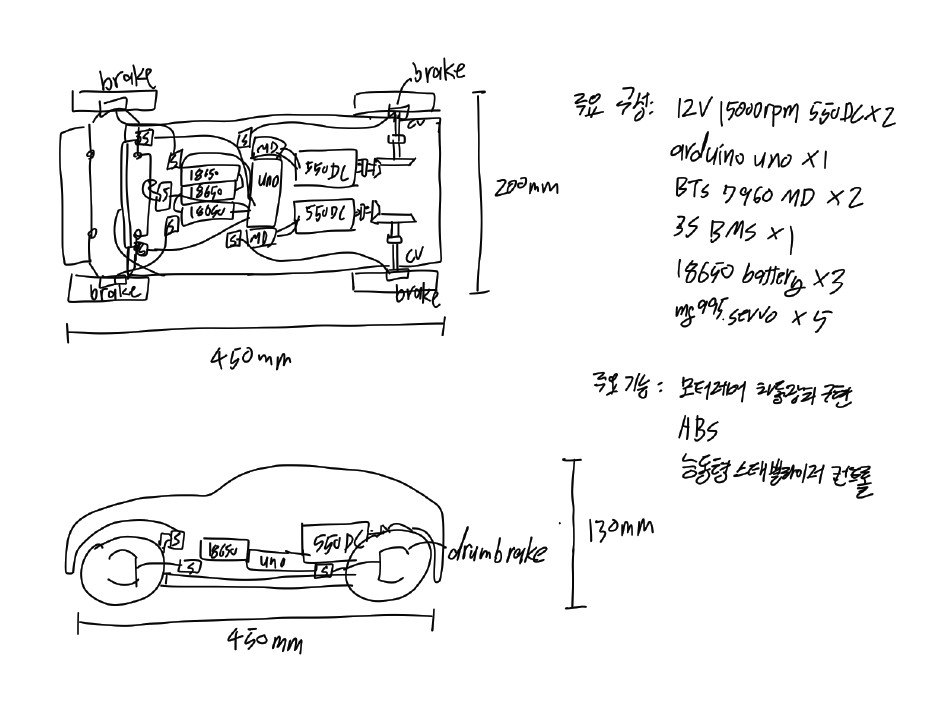 brake
brake
주요 구성: 12V 15000rpm 550DC×2
arduino uno ×1
BTs 7960 MD ×2
3S BMS ×1
18650 battery ×3
mg995.servo ×5
CV
S
S
MD
S
18650
18650
18650
S
S
UNO
550DC
550DC
S
MD
S
CV
brake
brake
200mm
450mm
주요 기능: 모터제어
ABS
능동형 스태빌라이저 컨트롤
S
18650
S
UNO
550DC
S
drumbrake
130mm
450mm